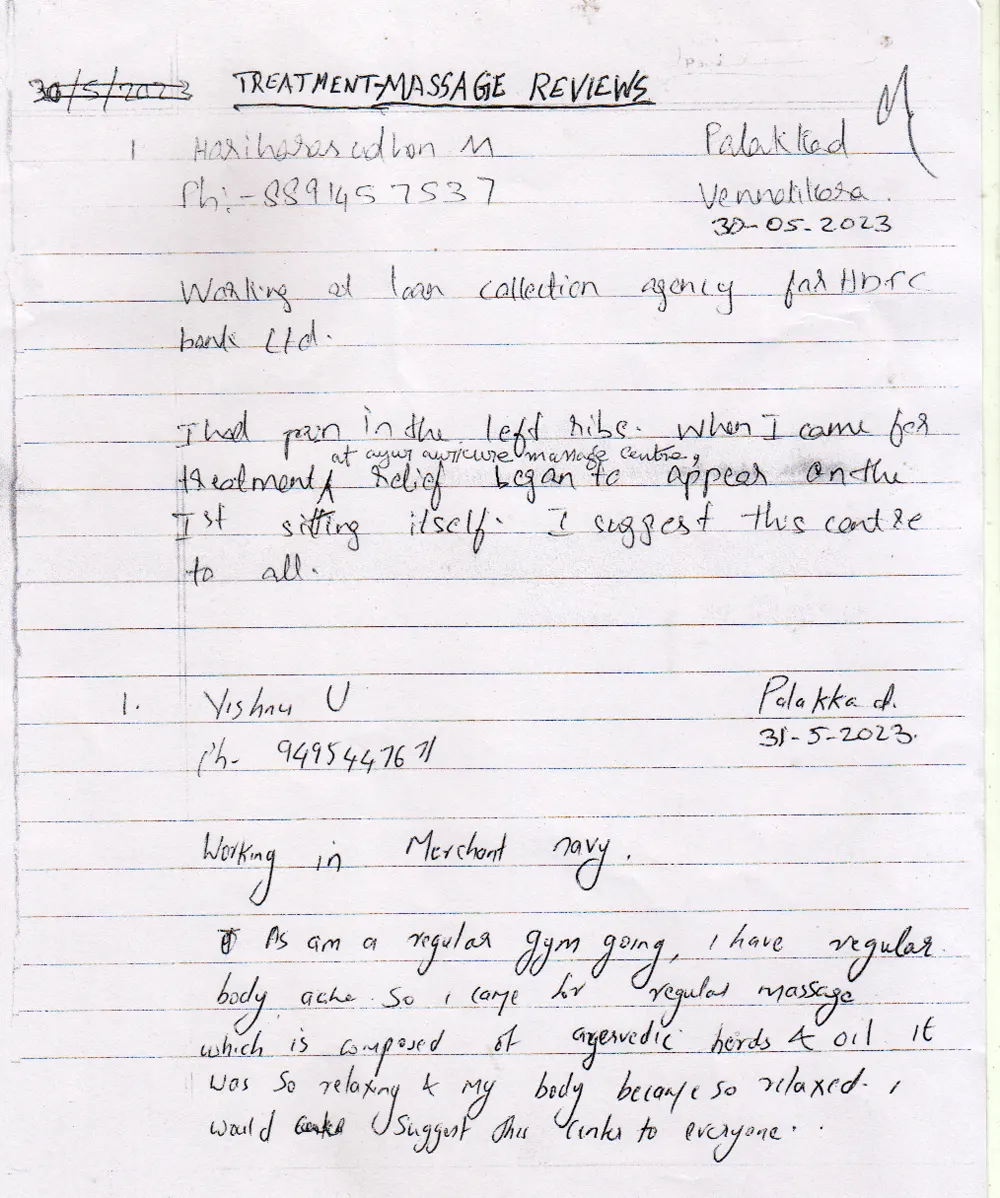 30/5/2023 TREATMENT-MASSAGE REVIEWS
1 Hariharasudhan M Palakkad
Ph:- 8891457537 Vennakkara.
30-05-2023
Working at loan collection agency for HDFC
bank Ltd.
I had pain in the left ribs. When I came for
at ayur auricure massage centre,
treatment relief began to appear on the
Ist sitting itself. I suggest this centre
to all.
1. Vishnu U Palakkad.
31-5-2023.
Ph- 9495447671
Working in Merchant navy.
As am a regular gym going, i have regular
body ache. So i came for regular massage
which is composed of ayervedic herds & oil it
was so relaxing & my body became so relaxed. i
would suggest this center to everyone.